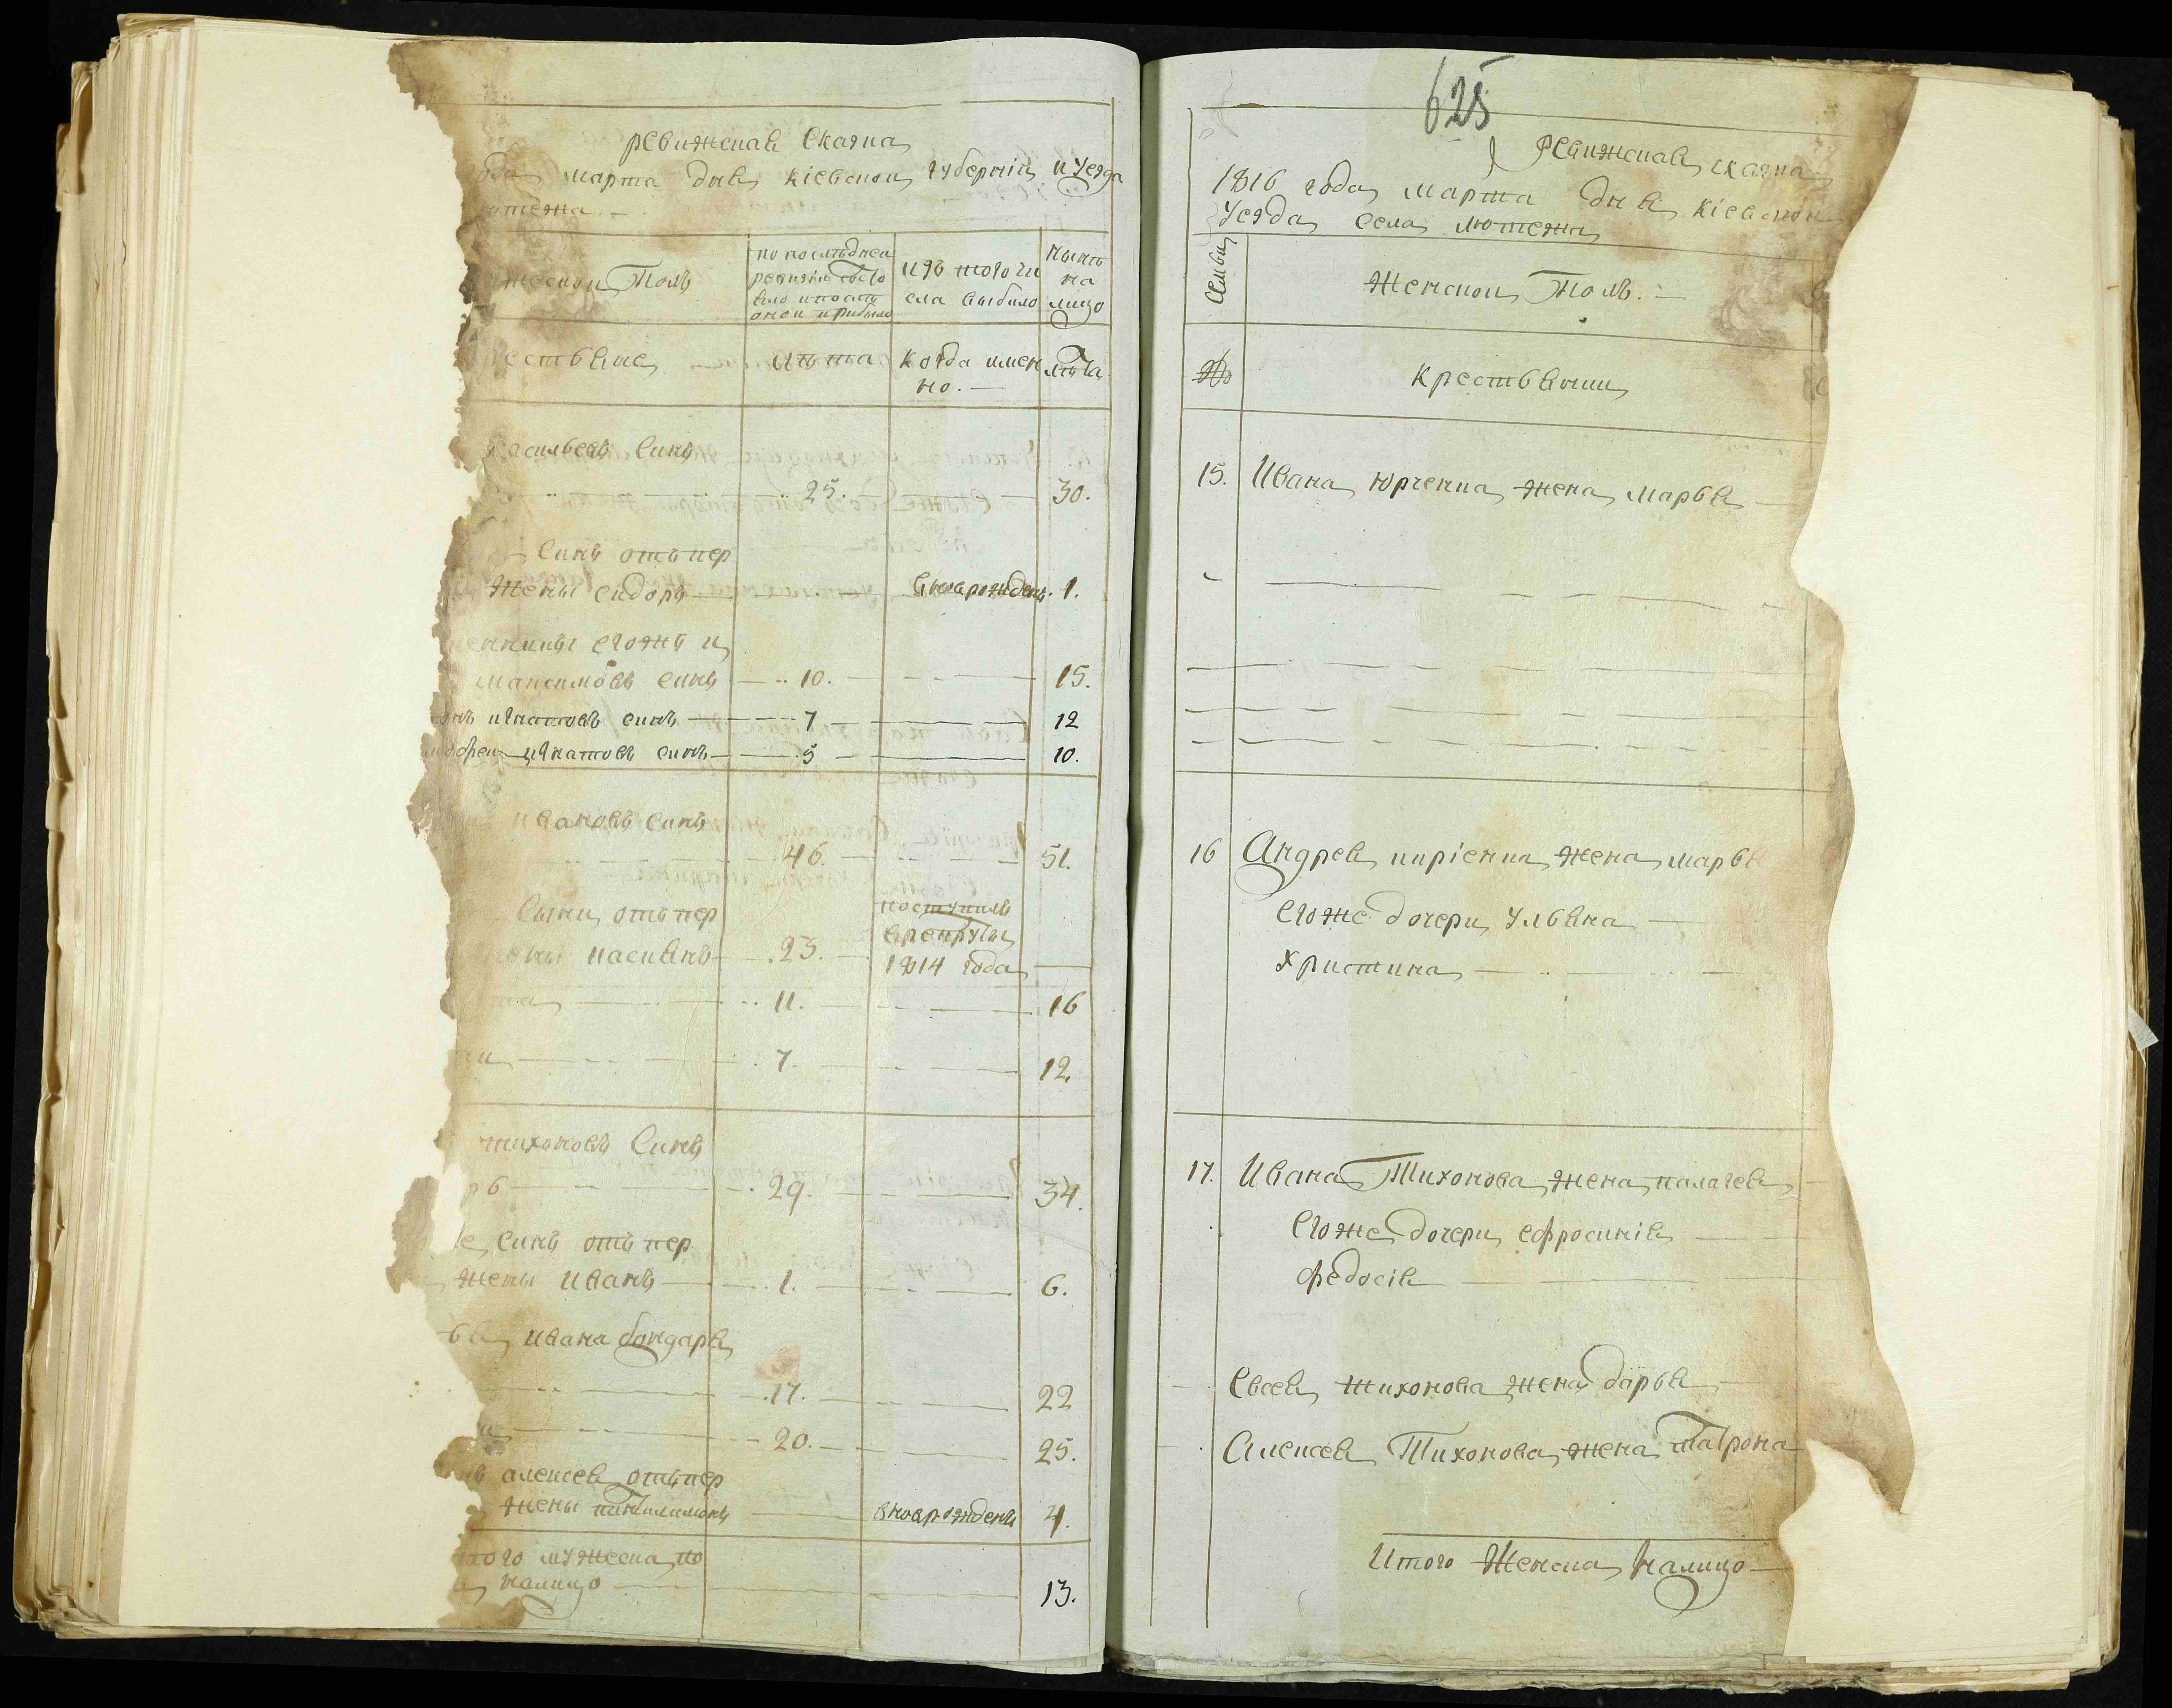 ревижская Сказка
ода марта дня кіевской губерніи и уезда
лютежа
мужеской Полъ
по последней
ревизіи состо
яло и после
оной прибыло
изъ того чи
сла выбыло
ныне
на
лицо
крестьяне
лета
когда имен
но.
лета
Васильевъ Синъ
25. 30.
Синъ отъ пер
жены сидоръ вновьрожденъ. 1.
племянники егожъ и
максимовъ синъ 10. 15.
игнатовъ синъ 7 12
андреи игнатовъ синъ 5 10.
ивановъ синъ
46. 51.
Сыни отъ пер
жены касиянъ 23. поступилъ
врекруты
1814 года
11. 16
7. 12.
тихоновъ Синъ
29. 34.
же синъ отъ пер
жены иванъ 1. 6.
ивана бондаря
17. 22
20. 25.
алексея отъ пер
жены пантилимонъ вновьрожденъ 4.
итого мужеска по
налицо 13.
625
Ревижская сказка
1816 года марта дня кіевской
уезда села лютежа
Семьи
Женской Полъ.
№
крестьянки
15. Ивана юрченка жена марья
16 Андрея киріенка жена марья
Егоже дочери ульяна
христина
17. Ивана Тихонова жена палагея
Егоже дочери ефросинія
федосія
Евсея тихонова жена дарья
Алексея Тихонова жена матрона
Итого Женска налицо